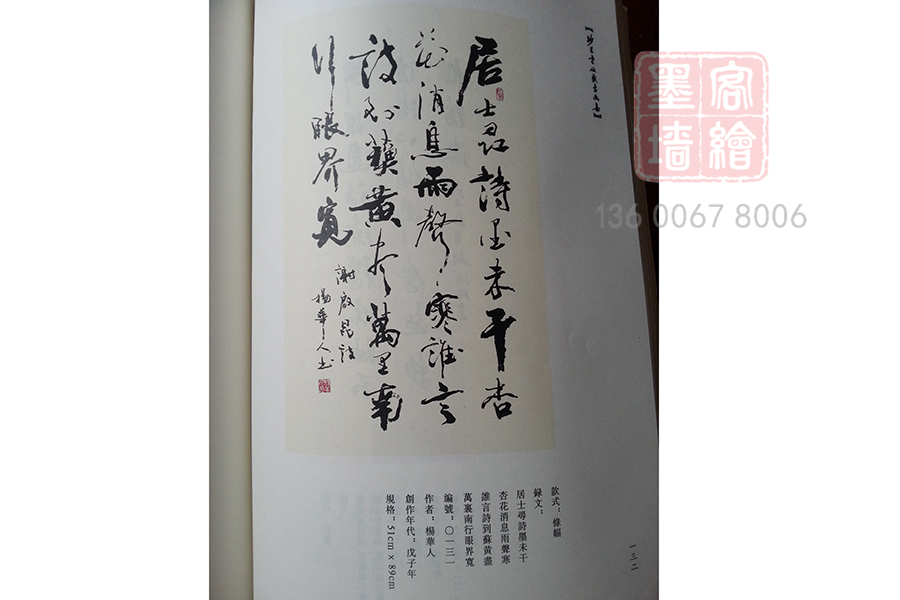 居士尋詩墨未干杏
花消息雨聲寒誰言
詩到蘇黄盡萬里南
行眼界寬
謝啟昆詩
楊華人书
客繪
墨墙
136 0067 8006
款式：條幅
録文：
居士尋詩墨未干
杏花消息雨聲寒
誰言詩到蘇黄盡
萬裏南行眼界寬
編號：〇一三一
作者：楊華人
創作年代：戊子年
規格：51cm×89cm
一三二